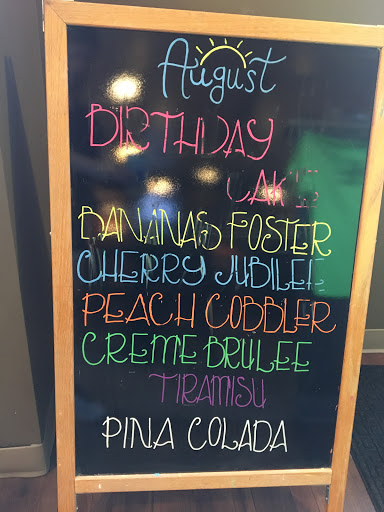 August
BIRTHDAY
CAKE
BANANAS FOSTER
CHERRY JUBILEE
PEACH COBBLER
CREME BRULEE
TIRAMISU
PINA COLADA